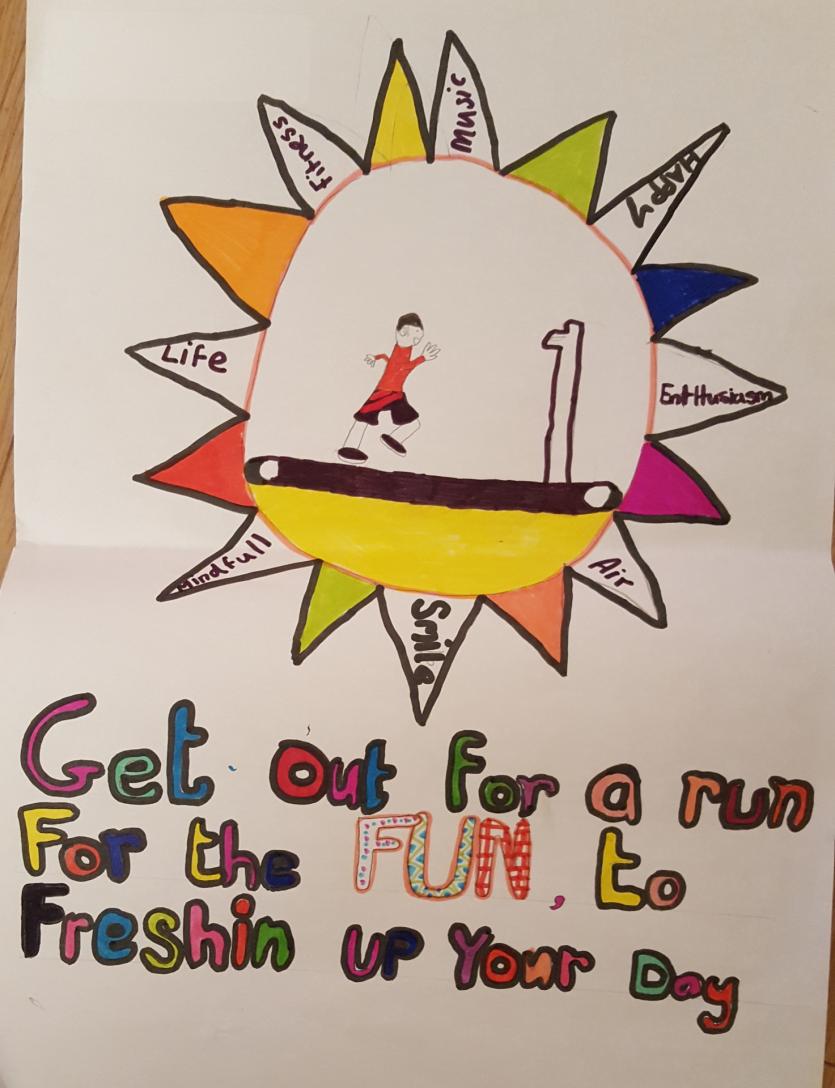 music
fitness
HAPPy
Life
EntHusiasm
Mindfull
Air
Smile
Get Out for a run
For the FUN, to
Freshin UP Your Day